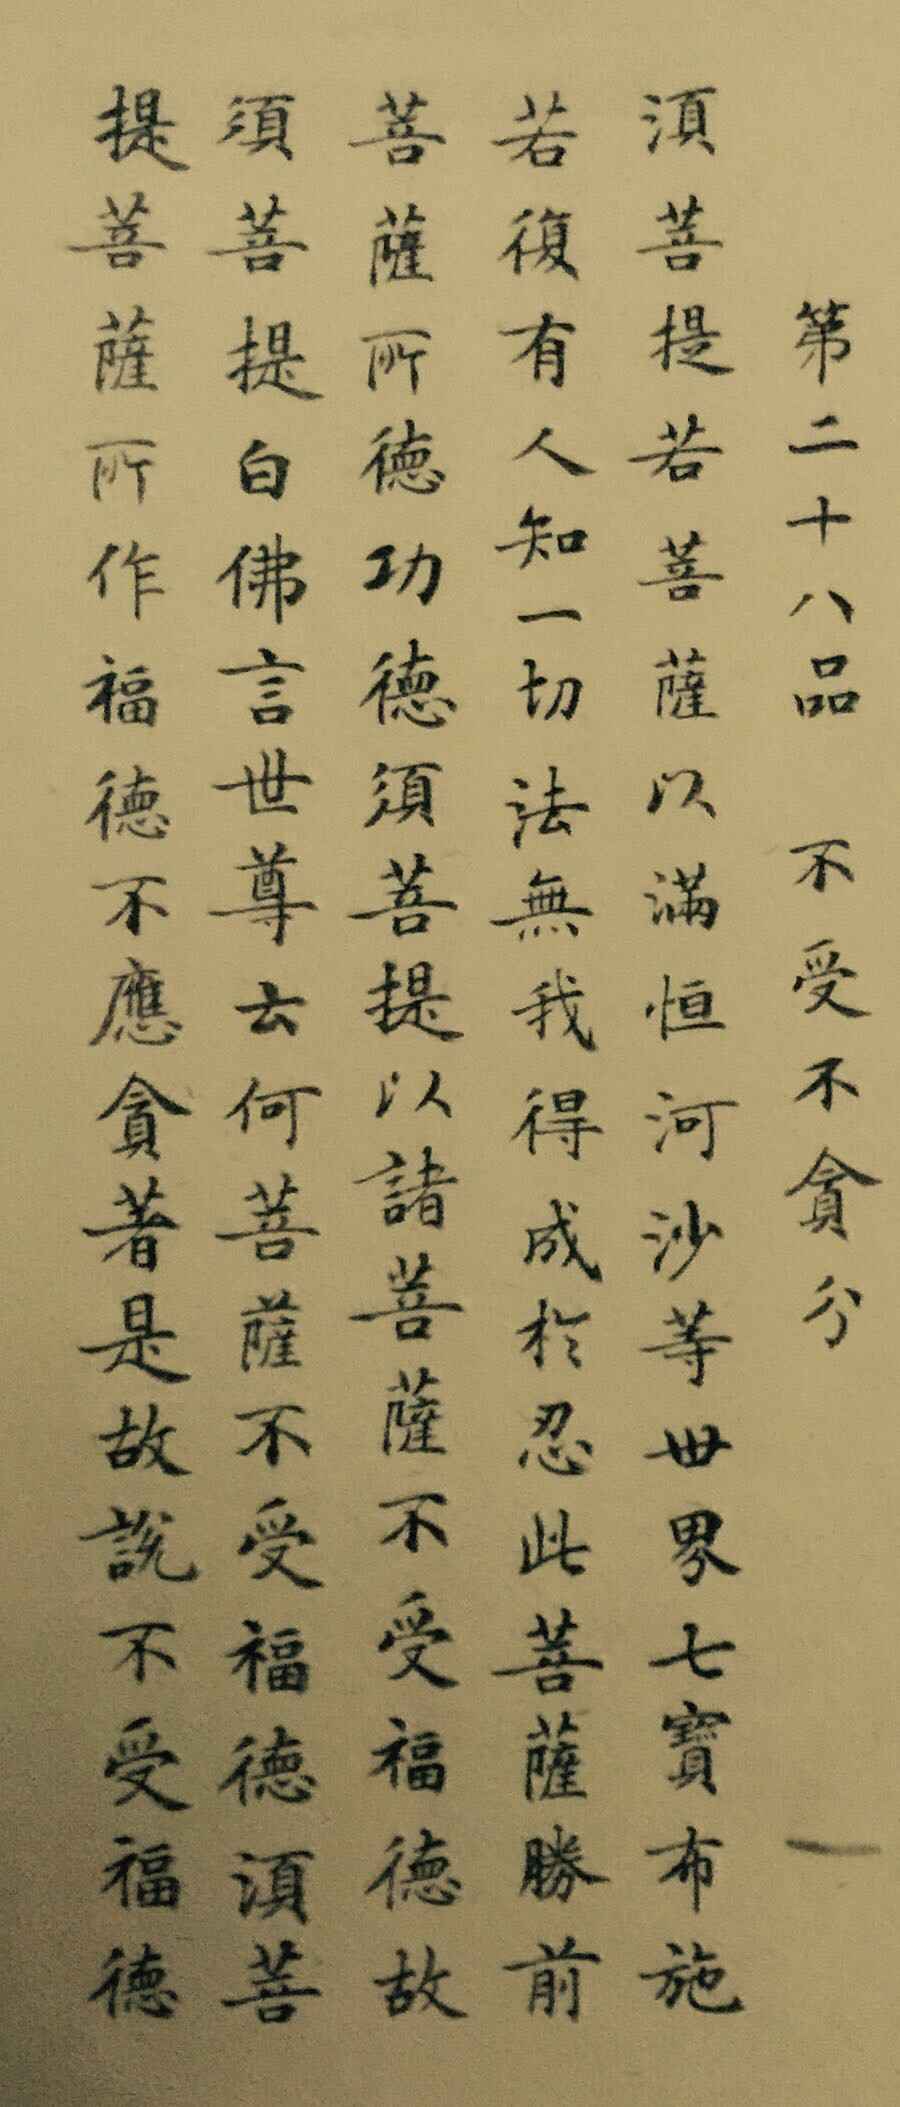 第二十八品 不受不貪分 一
須菩提若菩薩以滿恒河沙等世界七寶布施
若復有人知一切法無我得成於忍此菩薩勝前
菩薩所德功德須菩提以諸菩薩不受福德故
須菩提白佛言世尊云何菩薩不受福德須菩
提菩薩所作福德不應貪著是故說不受福德